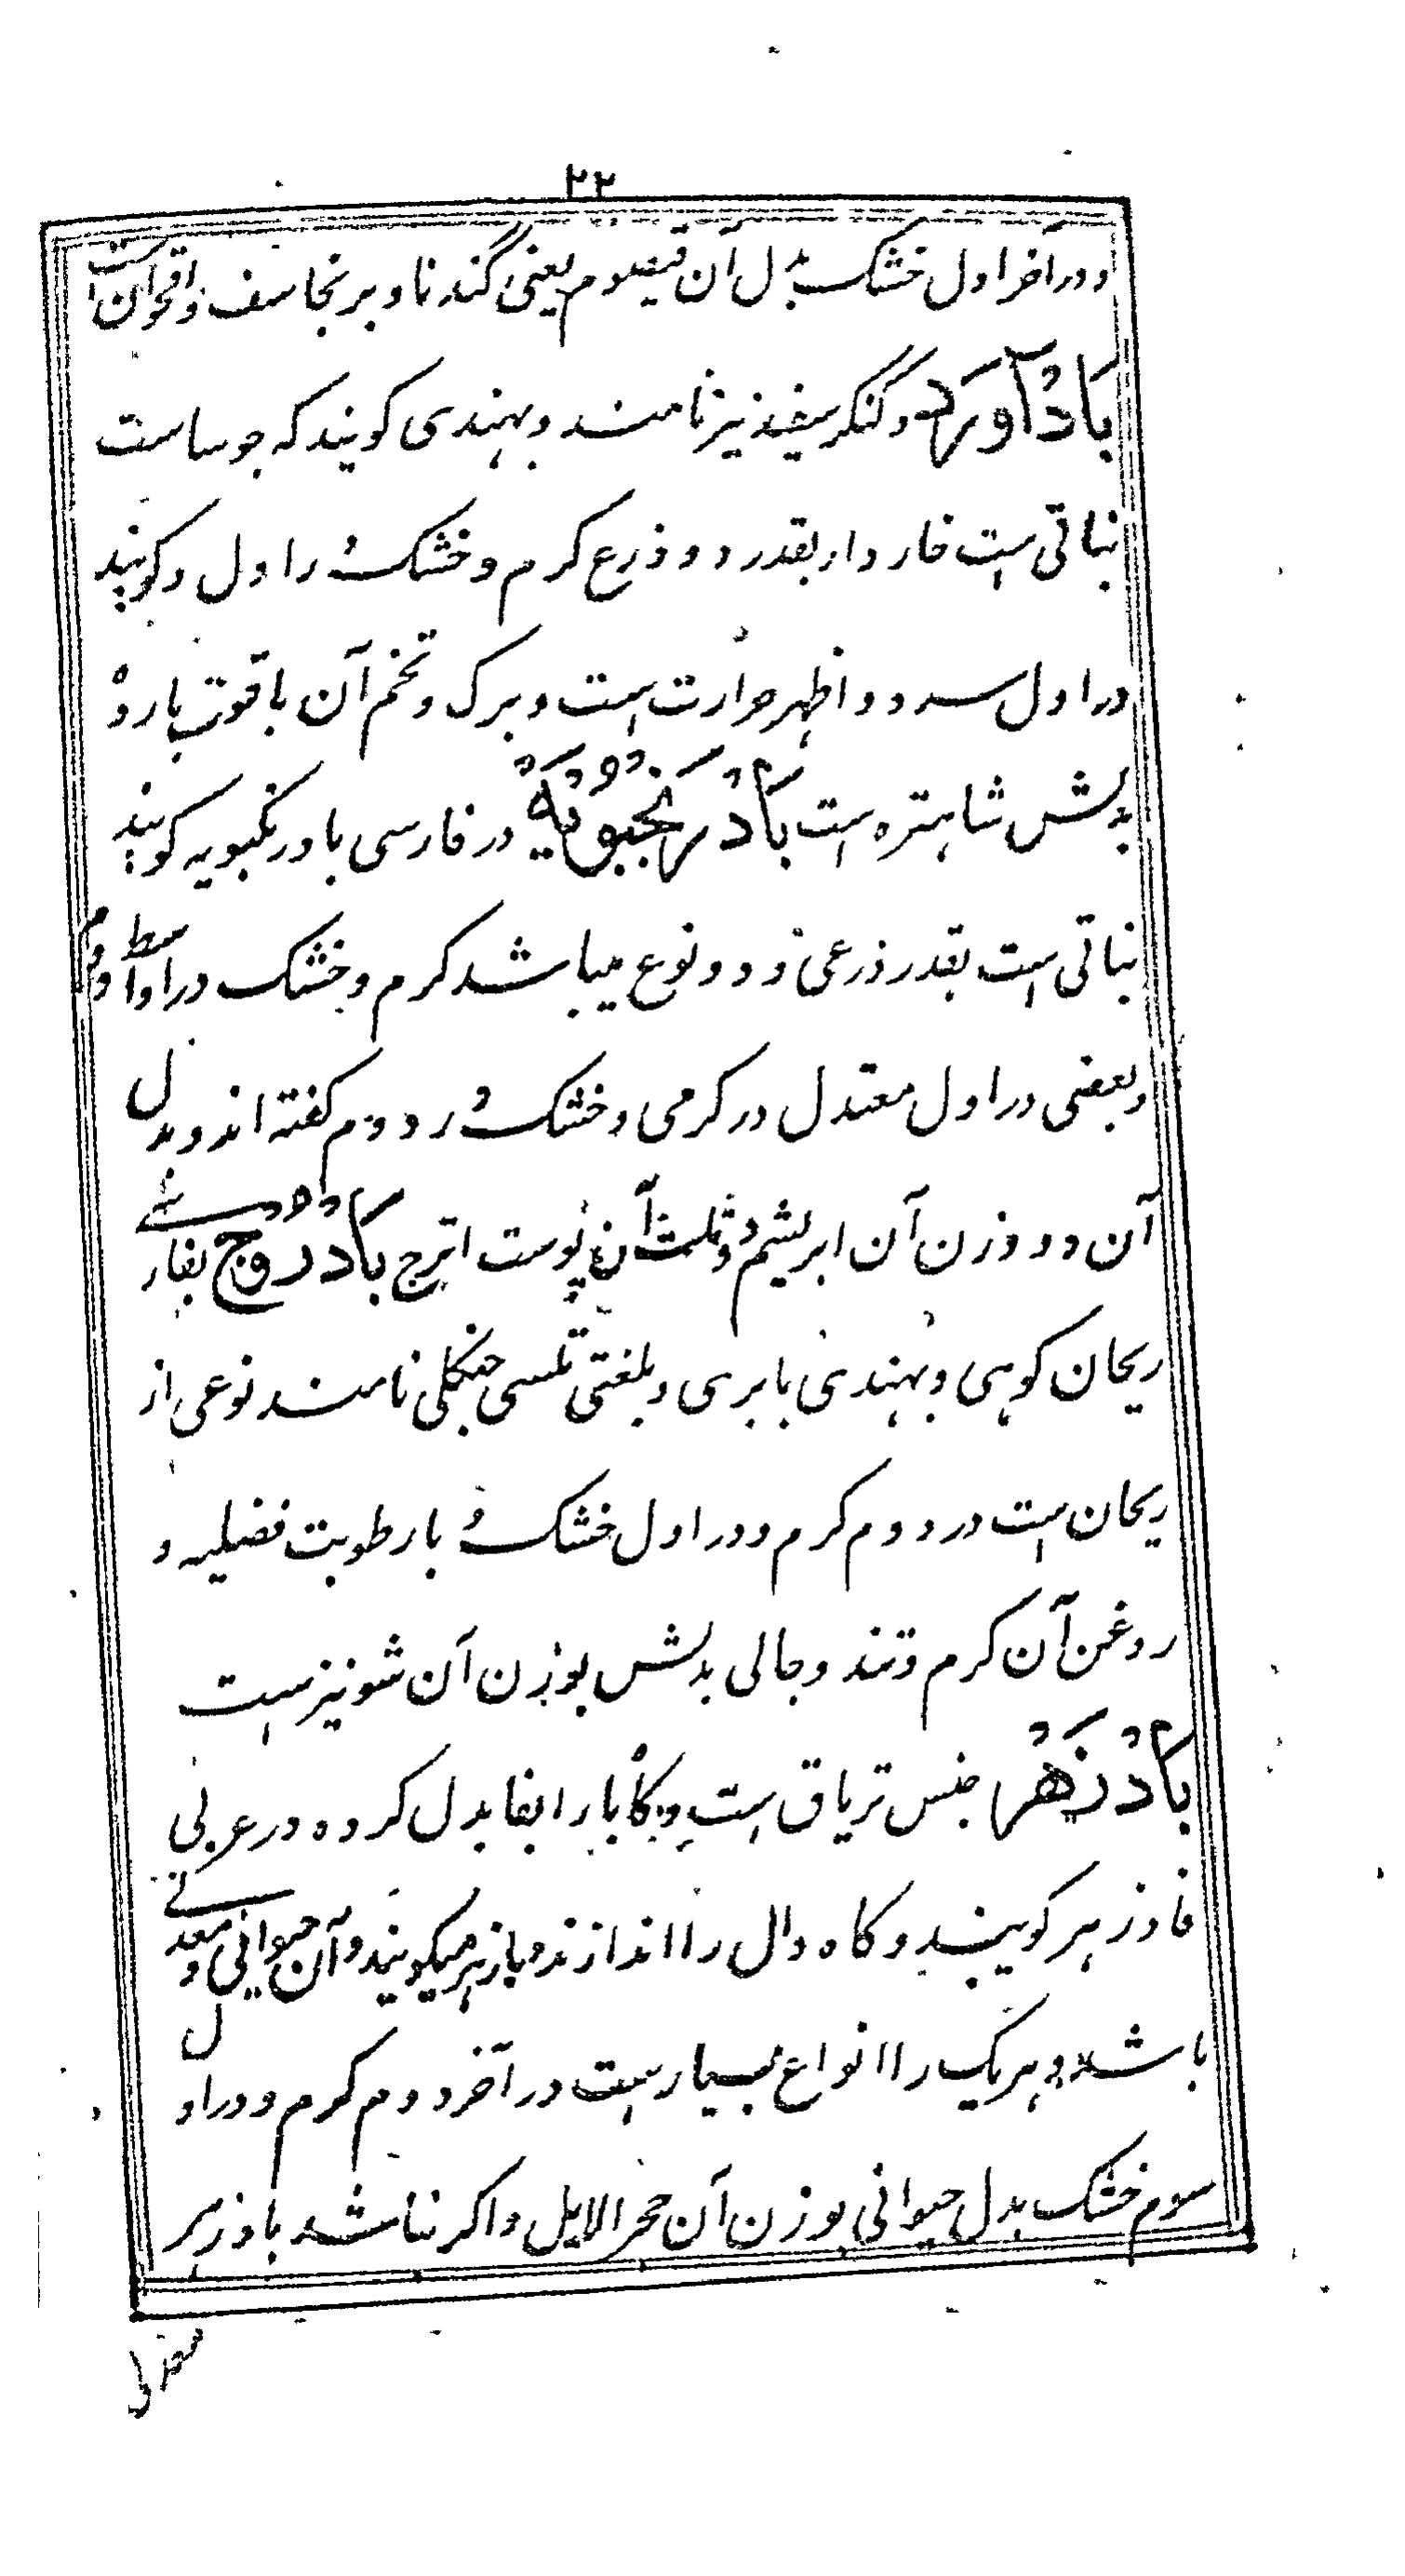 ۲۲
و در آخر اول خشک بدل آن قیصوم یعنی گندنا و برنجاسف و اقحوان است
بَادْآوَرَد و کنکر سفید نیز نامند و بهندی کویند که جوساست
نباتی است خار دار بقدر دو ذرع کرم و خشک در اول و کویند
در اول سرد و اظهر حرارت است و برک و تخم آن با قوت بارده
بدلش شاهتره است بَادْرَنْجبُوْیَهْ در فارسی بادرنکبویه کویند
نباتی است بقدر ذرعی و دو نوع میباشد کرم و خشک در اواسط دوم
و بعضی در اول معتدل در کرمی و خشک در دوم کفته اند و بدل
آن دو وزن آن ابریشم و دو ثلث آن پوست اترج بَادْرُوْجْ بفارسے
ریحان کوهی و بهندی بابری و بلغتی تلسی جنکلی نامند نوعی از
ریحان است در دوم کرم و در اول خشک و با رطوبت فضلیه و
روغن آن کرم و تند و جالی بدلش بوزن آن شونیز است
بَادْزَهْر جنس تریاق است و کاه با را بفا بدل کرده در عربی
فادزهر کویند و کاه دال را اندازند و بازهر میکویند و آن حیوانی و معدنے
باشد و هر یک را انواع بسیار است در آخر دوم کرم و در اول
سوم خشک بدل حیوانی بوزن آن حجر الایل و اکر نباشد بادزهر